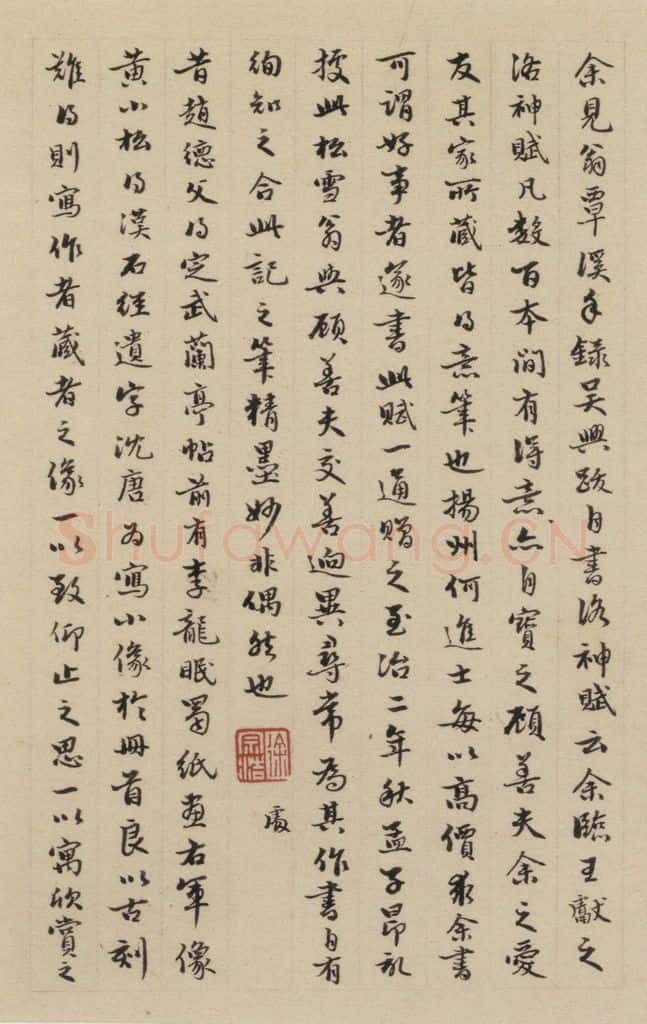 余見翁覃溪手錄吳興跋自書洛神賦云余臨王獻之
洛神賦凡數百本間有得意亦自寶之顧善夫余之愛
友其家所藏皆得意筆也揚州何進士每以高價求余書
可謂好事者遂書此賦一通贈之至治二年秋孟子昂記
按此松雪翁與顧善夫交善迥異尋常為其作書自有
絢知之合此記之筆精墨妙非偶然也
昔趙德父得定武蘭亭帖前有李龍眠蜀紙畫右軍像
黃小松得漢石經遺字沈唐為寫小像於冊首良以古刻
難得則寫作者藏者之像一以致仰止之思一以寓欣賞之
Shufawang.CN